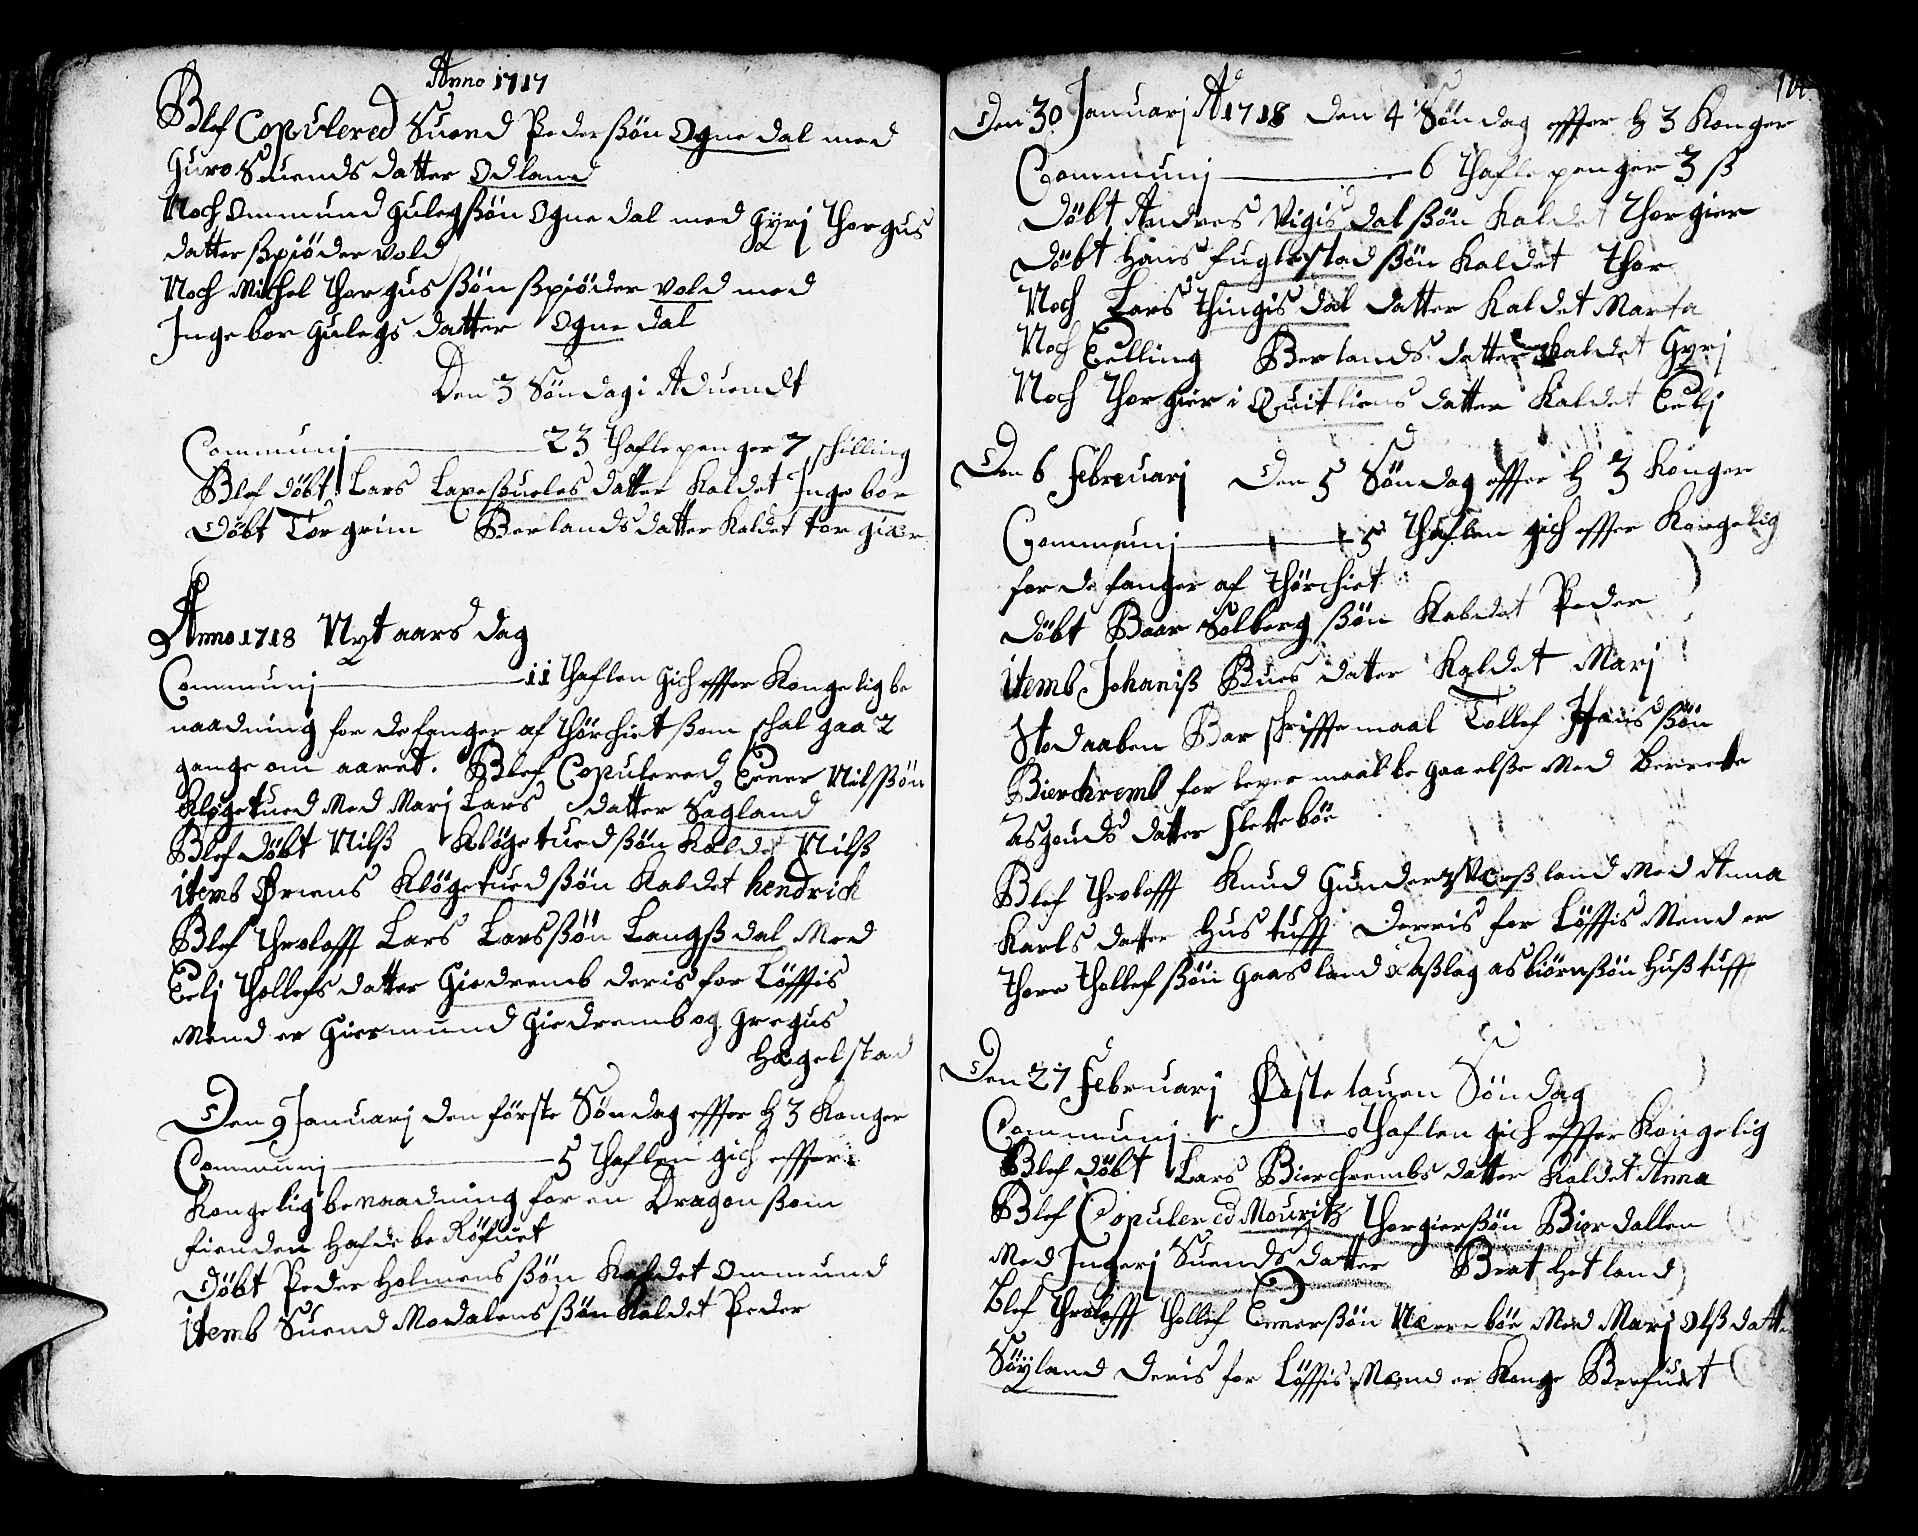 Anno 1717
Blef Copulered Suend Pederßøn Ognedal med
Guro Suends datter Odland
Noch Ommund Gulegßøn Ognedal med Gyrj Thorgus
datter ßpiøder vold
Noch Michel Thorgusßøn ßpiøder vold med
Ingebor Gulegs datter Ognedal
Den 3 Søndag i Aduendt
Communj 23 Thaflepenger 7 schilling
Blef døbt Lars Laxeßueles datter Kaldet Ingebor
Døbt Torgrim Berlands datter Kaldet Torgiær
Anno 1718 Nyt aars dag
Communj 11 Thaflen Gich effter Kongelig be
naadning for de fanger af Thørchiet ßom schal gaa 2
gange om aaret. Blef Copulered Eener Nilßøn
Kløgetued Med Marj Lars datter Sagland
Blef døbt Nilß Kløgetued ßøn Kaldet Nilß
itemb Øriens Kløgetued ßøn Kaldet hendrick
Blef Throloff Lars Larsßøn Langßdal Med
Eelj Thollefs datter Giedremb deris for Løfftis
Mend er Giermund Giedremb og Gregus
Hægelstad
Den 9 Januarj den første Søndag effter H 3 Konger
Communj 5 Thaflen gich effter
Kongelig benaadning for en Dragon ßom
fienden Hafde be Røfuet
Døbt Peder Holmens ßøn Kaldet Ommund
itemb Suend Modalens ßøn Kaldet Peder
Den 30 Januarj Ao 1718 Den 4 Søndag effter H 3 Konger
Communj 6 Thaflepenger 3 ß
Døbt Andres Vigisdal ßøn Kaldet Thorgier
Døbt Hans fuglestad ßøn Kaldet Thor
Noch Lars Thingisdal datter Kaldet Marta
Noch Eelling Berlands datter Kaldet Gyrj
Noch Thorgier i Quitliens datter Kaldet Eelj
Den 6 Februarj Den 5 Søndag effter H 3 Konger
Communj 5 Thaflen gich effter Kongelig
for de fanger af Thørchiet
Døbt Baar Solberg ßøn Kaldet Peder
itemb Johaniß Bues datter Kaldet Marj
Stod aaben Bar schrifftemaal Tollef Hansßøn
Bierckremb for leyermaal begaaelße Med Berrette
Aszouds datter Slettebøe
Blef Throloff Knud Gunders Værßland Med Anna
Karls datter Hustufft Derris for Løfftis Mend er
Thore Thollefßøn Gaasland & Aßlag asbiørnßøn Hußtufft
Den 27 Februarj Fastelauen Søndag
Communj 0 Thaflen gich effter Kongelig
Blef døbt Lars Bierchrembs datter Kaldet Anna
Blef Copulered Mouritz Thorgierßøn Bierdallen
Med Ingerj Suends datter Brat Hetland
Blef Throloff Thollef Eenerßøn Nærebøe Med Marj olß datte
Søyland Deris for Løfftis Mænd er Konge Brefuet